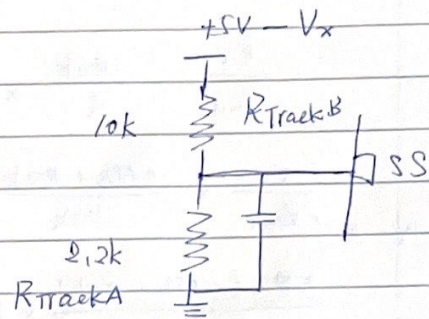 +5V — Vx
10k
RTrackB
SS
2,2k
RTrackA